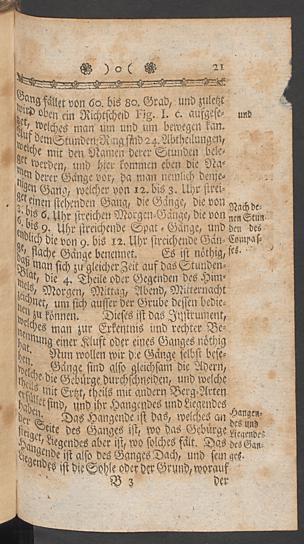 ❀ ) o ( ❀ 21
Gang fället von 60. bis 80. Grad, und zuletzt
wird oben ein Richtscheid Fig. I. c. aufgese-
get, welches man um und um bewegen kan.
Auf dem Stunden-Ring sind 24. Abtheilungen,
welche mit den Namen derer Stunden bele-
get worden, und hier kommen eben die Na-
men derer Gänge vor, da man nemlich denje-
nigen Gang, welcher von 12. bis 3. Uhr strei-
chet einen stehenden Gang, die Gänge, die von
3. bis 6. Uhr streichen Morgen-Gänge, die von
6. bis 9. Uhr streichende Spat-Gänge, und
endlich die von 9. bis 12. Uhr streichende Gän-
ge, flache Gänge benennet. Es ist nöthig,
daß man sich zu gleicher Zeit auf das Stunden-
Blat, die 4. Theile oder Gegenden des Him-
mels, Morgen, Mittag, Abend, Mitternacht
zeichnet, um sich ausser der Grube dessen bedie-
nen zu können. Dieses ist das Instrument,
welches man zur Erkentnis und rechter Be-
nennung einer Kluft oder eines Ganges nöthig
hat. Nun wollen wir die Gänge selbst bese-
hen. Gänge sind also gleichsam die Adern,
welche die Gebürge durchschneiden, und welche
theils mit Erzt, theils mit andern Berg-Arten
erfüllet sind, und ihr Hangendes und Liegendes
haben. Das Hangende ist das, welches an
der Seite des Ganges ist, wo das Gebürge
Liegendes aber ist, wo solches fält. Das
Hangende ist also des Ganges Dach, und sein
Liegendes ist die Sohle oder der Grund, worauf
B 3 der
und
Nach de-
nen Stun-
den des
Compas-
ses.
Hangen-
des und
Liegendes
des Gan-
ges.